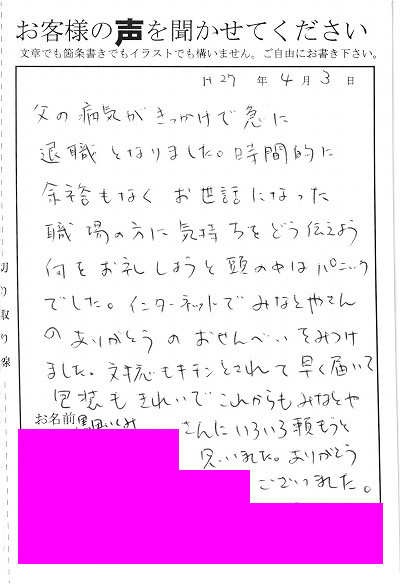 お客様の声を聞かせてください
文章でも箇条書きでもイラストでも構いません。ご自由にお書き下さい。
H27 年 4月 3 日
父の病気がきっかけで急に
退職となりました。時間的に
余裕もなく お世話になった
職場の方に気持ちをどう伝えよう
何をお礼しようと頭の中はパニック
でした。インターネットでみなとやさん
のありがとうのおせんべいをみつけ
ました。対応もキチンとされて早く届いて
包装もきれいでこれからもみなとや
さんにいろいろ頼もうと
思いました。ありがとう
ございました。
お名前
切り取り線